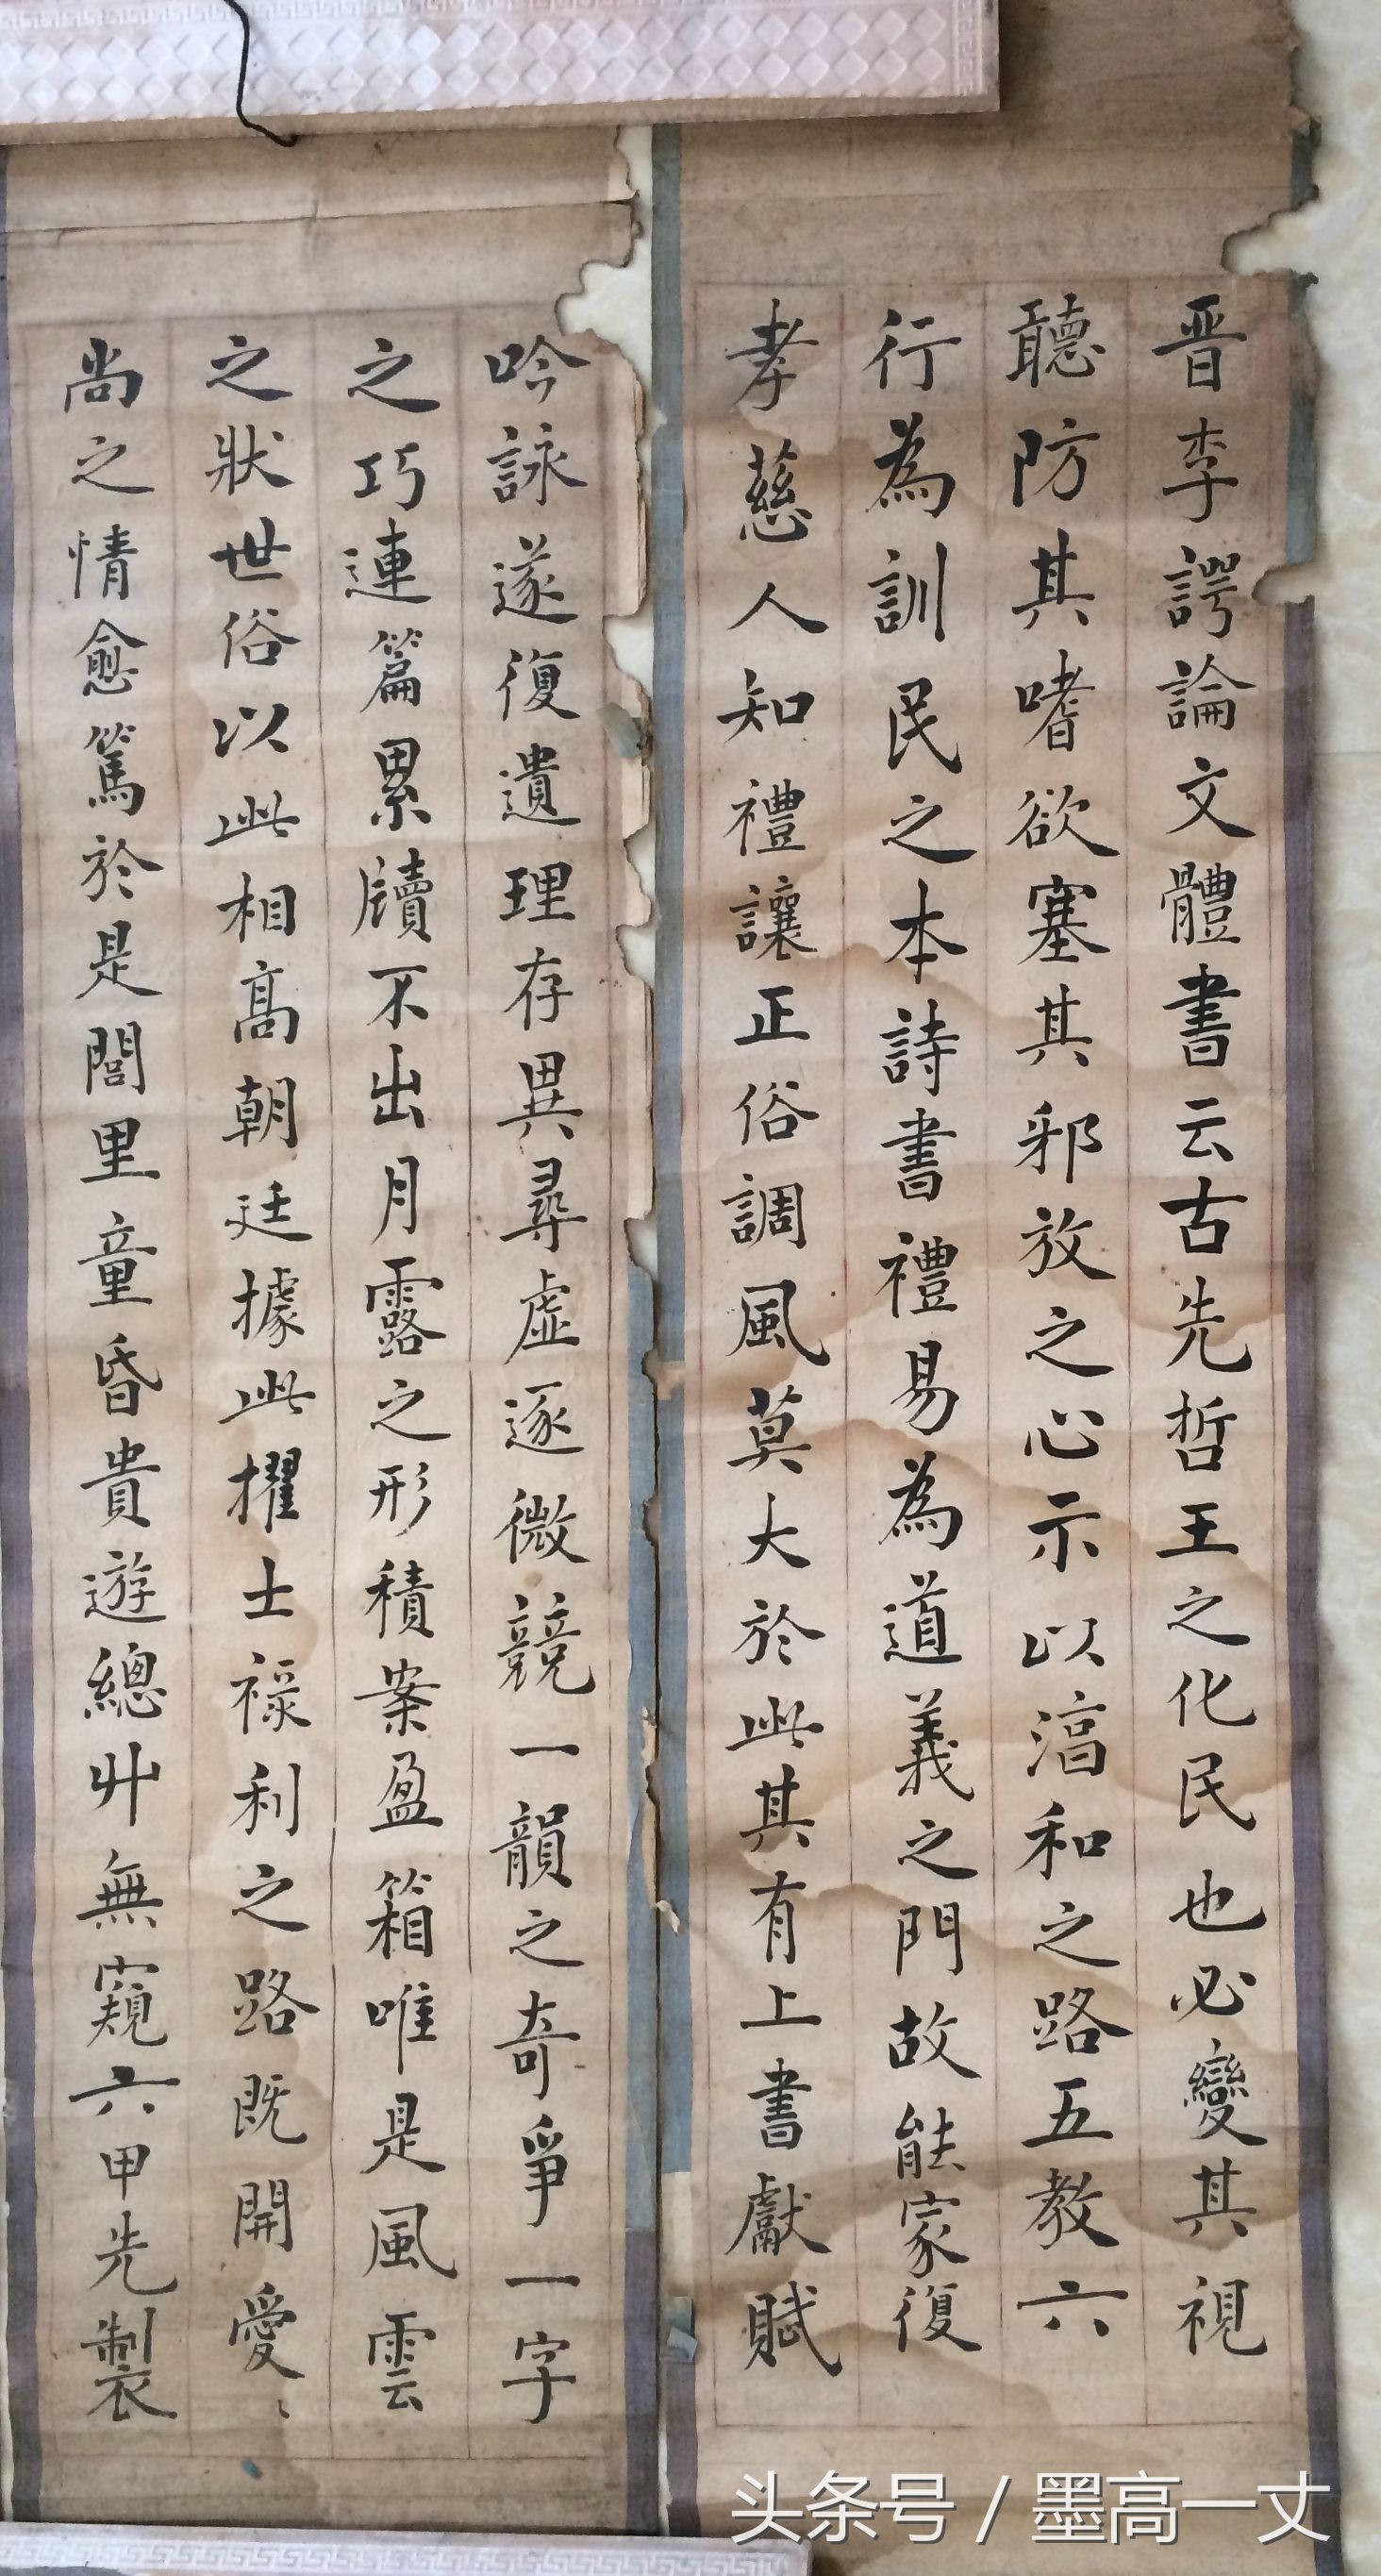 晋李諤論文體書云古先哲王之化民也必變其視
聽防其嗜欲塞其邪放之心示以淳和之路五教六
行為訓民之本詩書禮易為道義之門故能家復
孝慈人知禮讓正俗調風莫大於此其有上書獻賦
吟詠遂復遺理存異尋虛逐微競一韻之奇爭一字
之巧連篇累牘不出月露之形積案盈箱唯是風雲
之狀世俗以此相高朝廷據此擢士祿利之路既開愛
尚之情愈篤於是閭里童昏貴遊總丱無窺六甲先製
头条号 / 墨高一丈